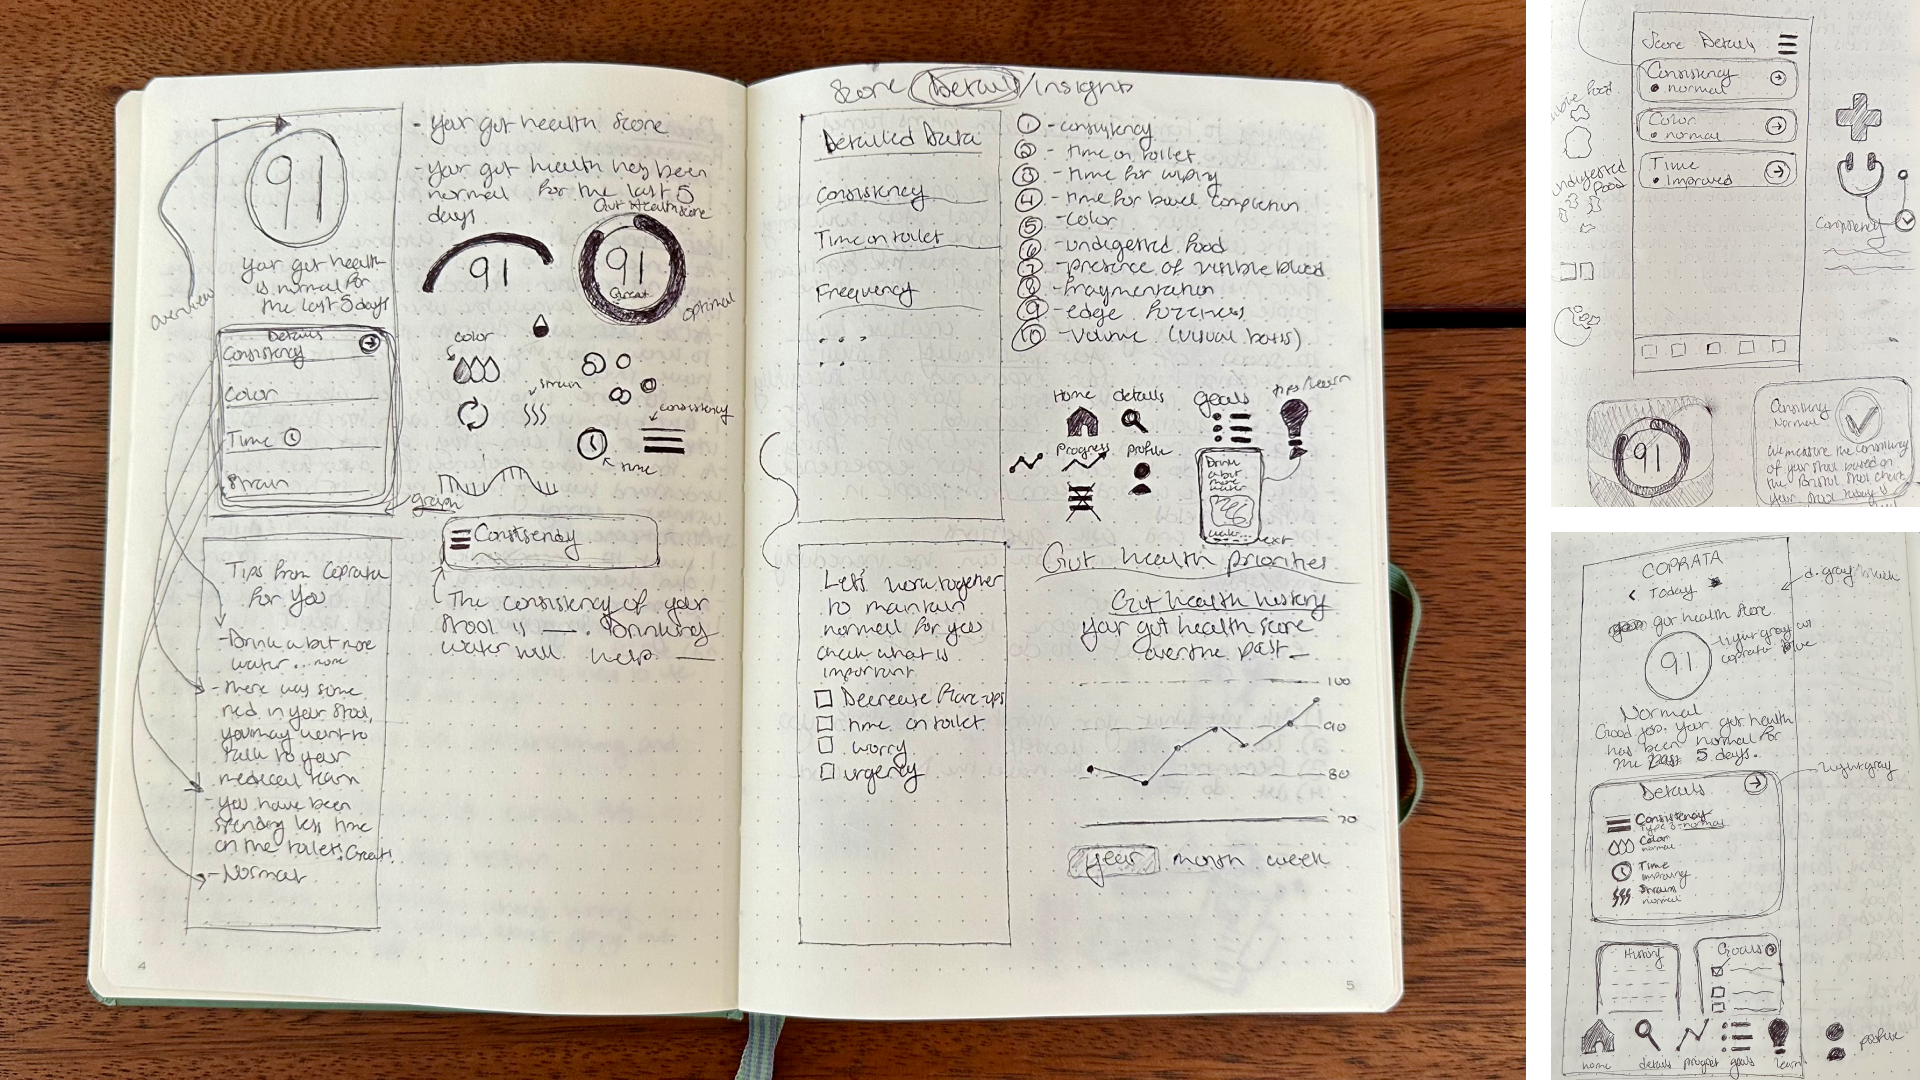 91
your gut health
is normal for
the last 5 days
overview
Details
Consistency
Color
Time
Strain
Tips from Coprata
for You
- Drink a bit more
water... more
- there was some
red in your stool,
you may want to
talk to your
medical team
- you have been
spending less time
on the toilet. Great!
- Normal
4
- your gut health score
- your gut health has been
normal for the last 5
days
91
Gut Health Score
91
Great
optimal
color
strain
consistency
time
graph
Consistency
The consistency of your
stool is __. Drinking
water will help __
Score Details/Insights
Detailed Data
Consistency
Time on toilet
Frequency
1 - consistency
2 - time on toilet
3 - time for wiping
4 - time for bowel completion
5 - color
6 - undigested food
7 - presence of visible blood
8 - fragmentation
9 - edge fuzziness
10 - volume (visual basis)
Home details goals tips/learn
progress profile
Drink
a bit
more
water
text
Gut health priorities
Let's work together
to maintain
normal for you
check what is
important
Decrease flare-ups
time on toilet
worry
urgency
Gut health history
your gut health score
over the past_
100
90
80
70
year month week
5
Score Details
Consistency
• normal
Color
• normal
Time
• Improved
food
undigested
food
Consistency
91
Consistency
Normal
we measure the consistency
of your stool based on
the Bristol Stool Chart.
your stool today is
COPRATA
< Today
gut health score
91
d. gray/black
light gray or
coprata blue
Normal
Good job. your gut health
has been normal for
the past 5 days.
light gray
Details
Consistency
Type 3 - normal
Color
normal
Time
improving
Strain
normal
History
Goals
home details progress goals learn
profile